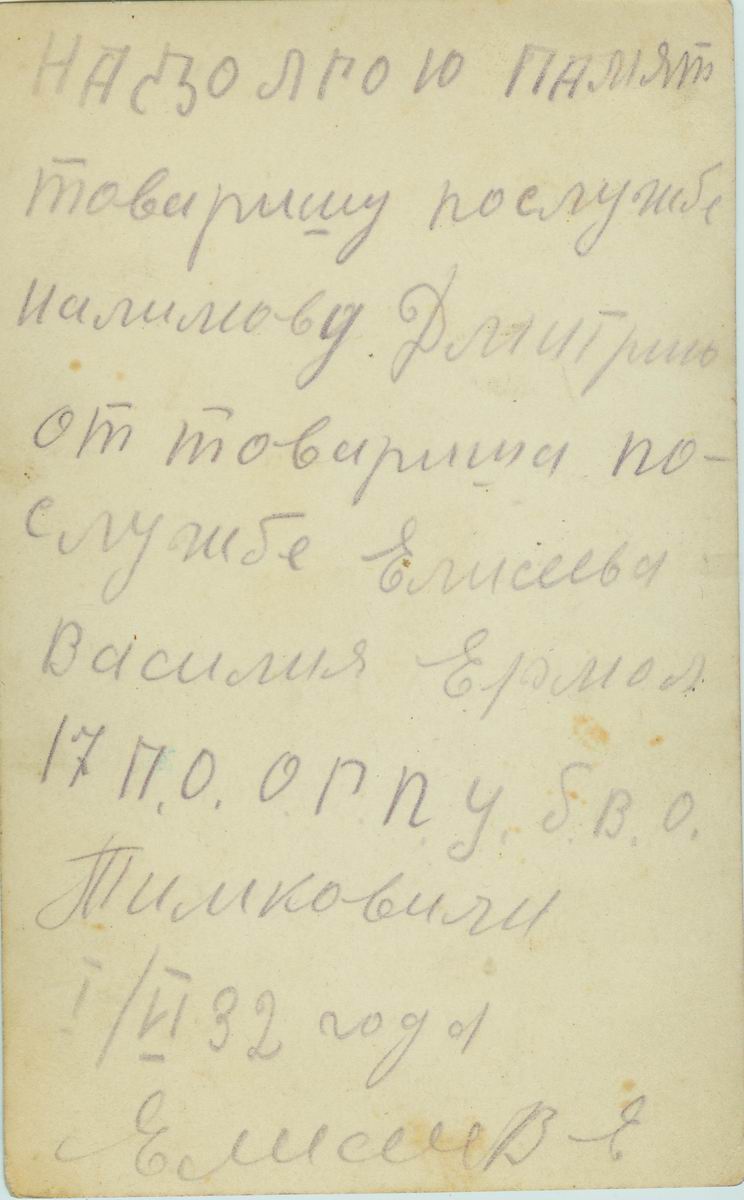 НА ДЗОЛГОЮ ПАМЯТ
товаришу послужбе
Налимову Дмитрию
от товариша по-
службе Елисеева
Василия Ермол
17 П.О. ОГПУ. Б.В.О.
Тимковичи
I/VI 32 года
Елисеев Е